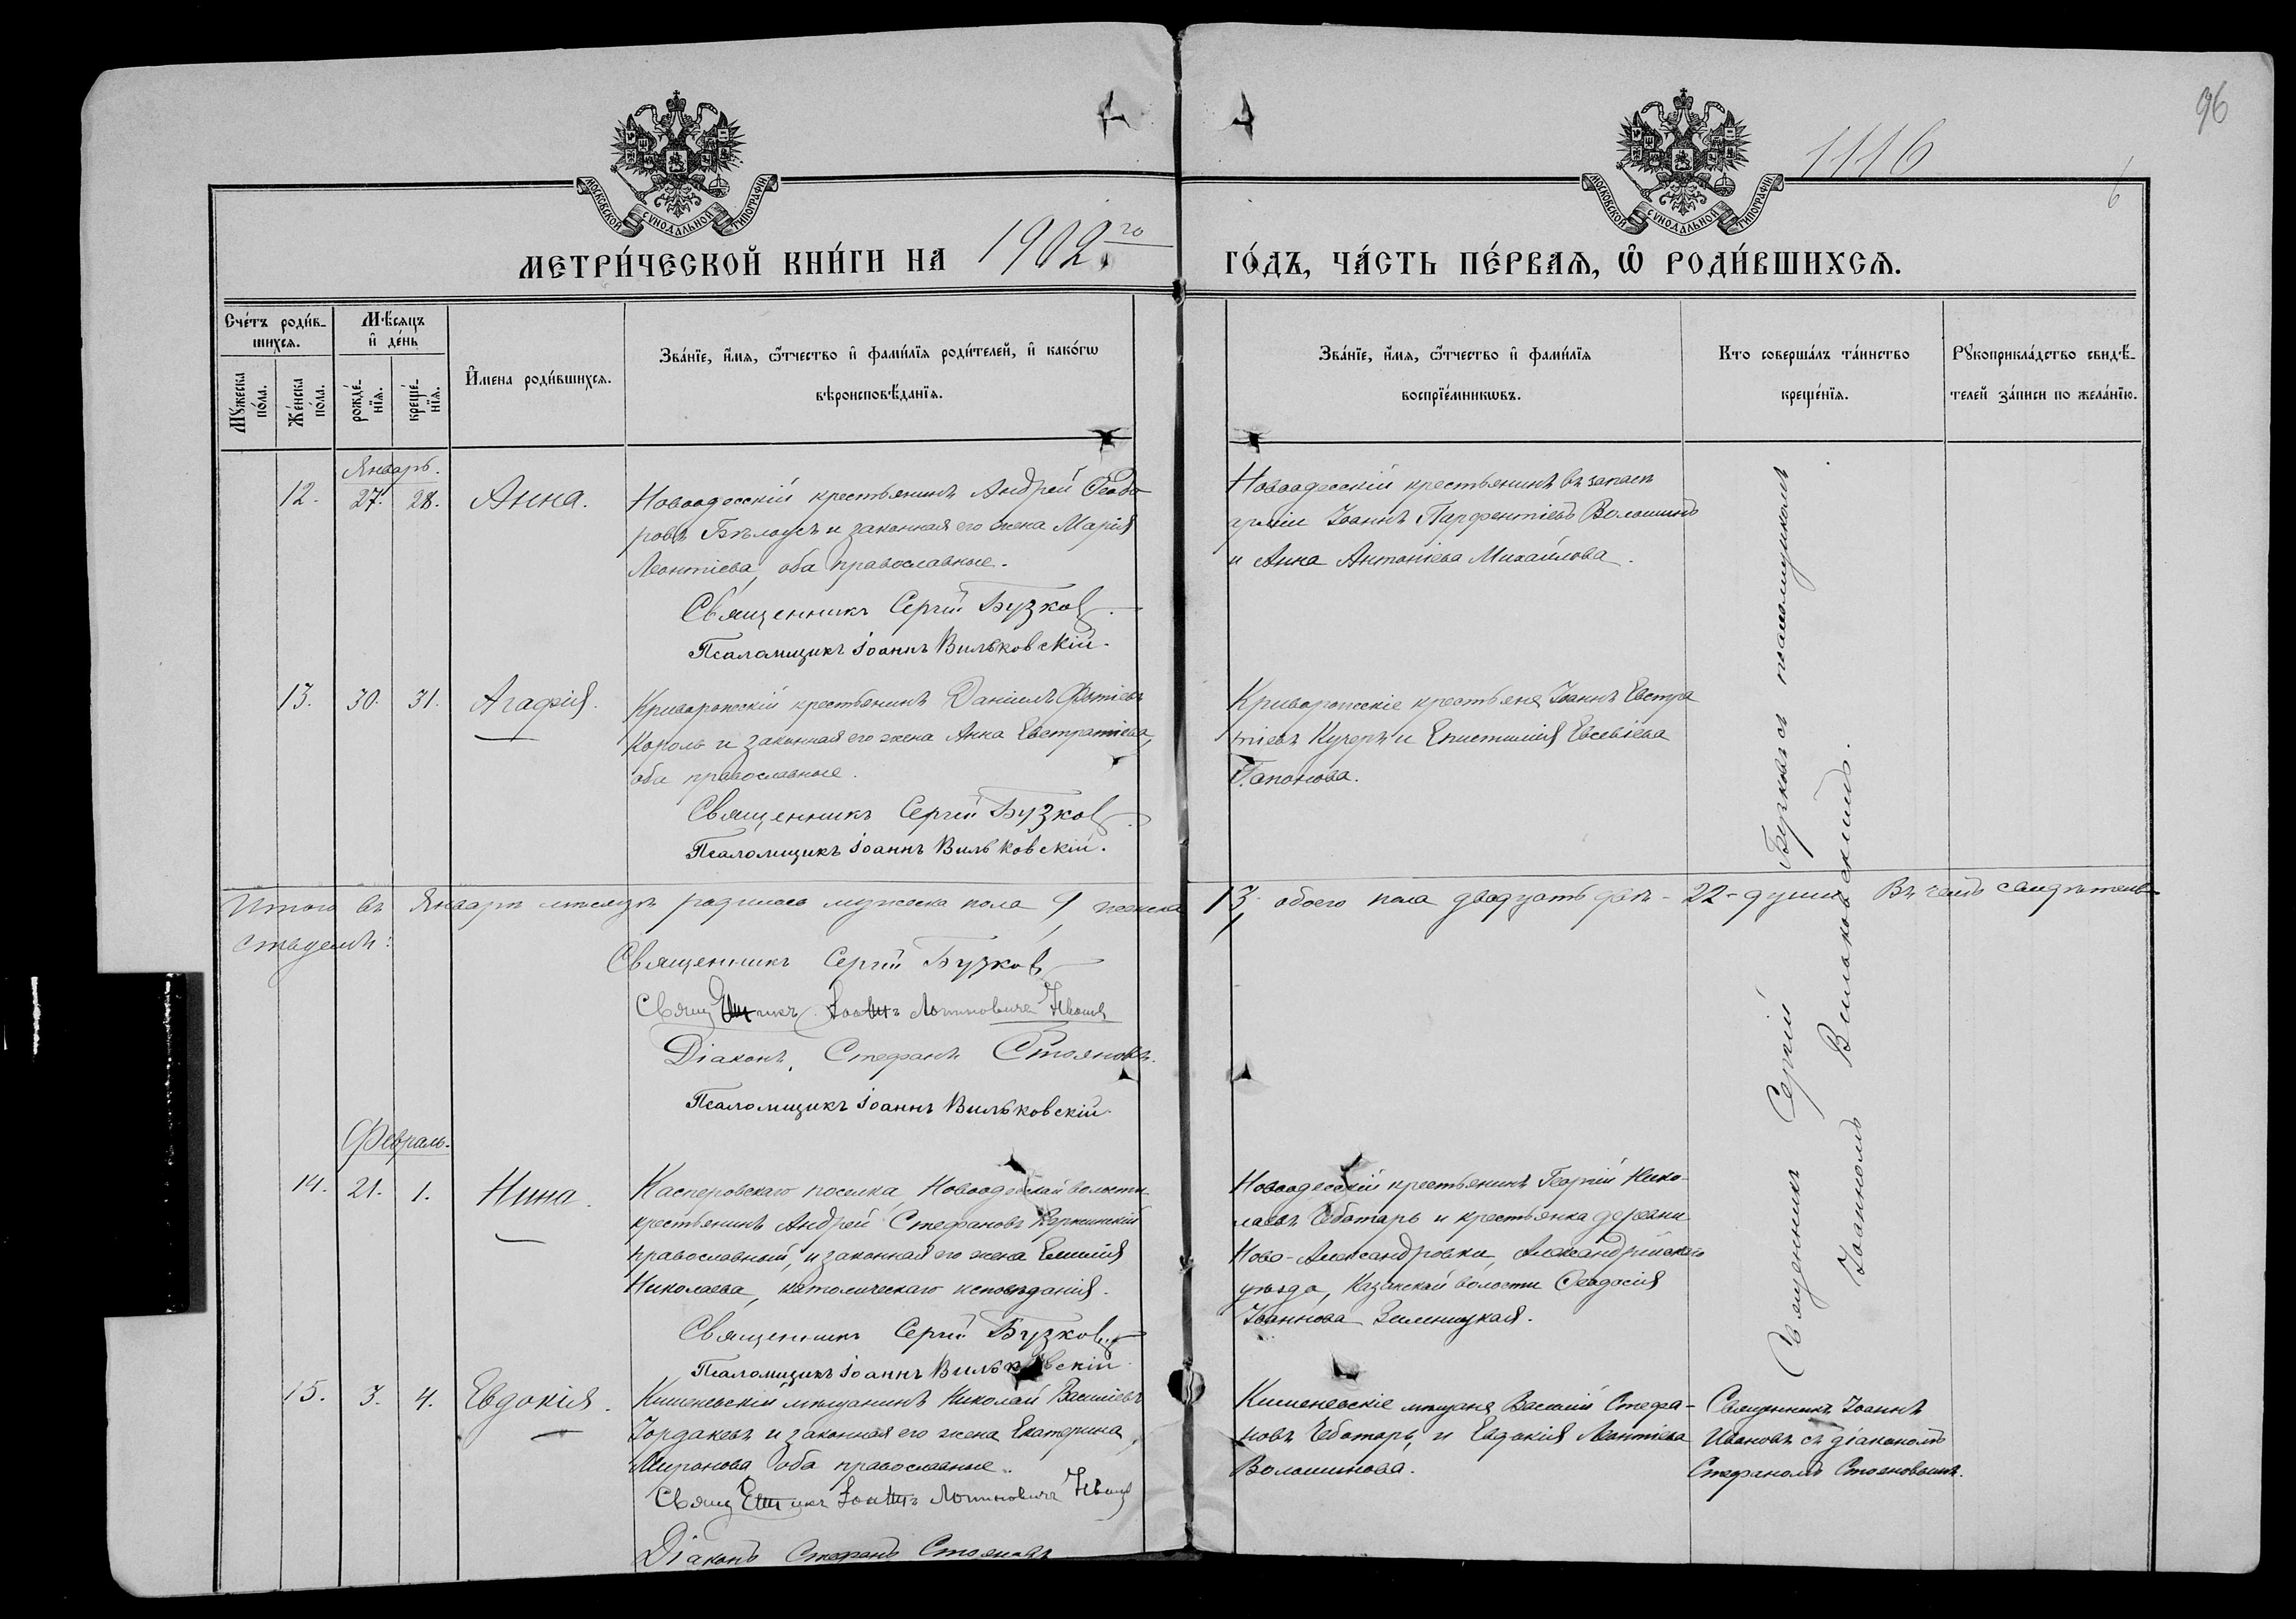 96
1116
6
МОСКОВСКОЙ СѴНОДАЛЬНОЙ ТИПОГРАФІИ
МОСКОВСКОЙ СѴНОДАЛЬНОЙ ТИПОГРАФІИ
МЕТРИ́ЧЕСКОЙ КНИ́ГИ НА 1902го ГО́ДЪ, ЧА́СТЬ ПЕ́РВАѦ, Ѡ҆ РОДИ́ВШИХСѦ.
Сче́тъ роди́в-
шихсѧ.
Мѣ́сѧцъ
и҆ де́нь
Мꙋ́жеска по́ла.
Же́нска по́ла.
рожде́-
нїѧ.
креще́-
нїѧ.
И҆мена роди́вшихсѧ.
Зва́нїе, и҆́мѧ, ѻ҆́тчество и҆ фами́лїѧ роди́телей, и҆ како́гѡ
вѣроисповѣ́данїѧ.
Зва́нїе, и҆́мѧ, ѻ҆́тчество и҆ фами́лїѧ
воспрїе́мникѡвъ.
Кто соверша́лъ та́инство
креще́нїѧ.
Рꙋкоприкла́дство свидѣ́-
телей за́писи по жела́нїю.
Январь.
12. 27. 28. Анна.
Новоодесскій крестьянинъ Андрей Ѳеодо
ровъ Бѣлоусъ и законная его жена Марія
Леонтіева, оба православные.
Священникъ Сергій Бузков
Псаломщикъ Іоаннъ Вильковскій.
Новоодесскій крестьянинъ въ запасѣ
арміи Іоаннъ Парфентіевъ Волошинъ
и Анна Антоніева Михайлова.
13. 30. 31. Агафія.
Криворожскій крестьянинъ Даніилъ Фотіевъ
Король и законная его жена Анна Евстратіева,
оба православные.
Священникъ Сергій Бузков
Псаломщикъ Іоаннъ Вильковскій.
Криворожскіе крестьяне Іоаннъ Евстра
тіевъ Кучеръ и Епистимія Евсевіева
Гапонова.
Итого въ Январѣ мѣсяцѣ родилось мужеска пола 9, женска 13, обоего пола двадцать двѣ - 22 - души. Въ чемъ свидѣтель-
ствуемъ:
Священникъ Сергій Бузков
Священникъ Іоаннъ Ивановъ
Діаконъ, Стефанъ Стояновъ.
Псаломщикъ Іоаннъ Вильковскій.
Февраль.
14. 21. 1. Нина.
Касперовскаго поселка, Новоодесской волости
крестьянинъ Андрей Стефановъ
православный, и законная его жена Емилія
Николаева, католическаго исповѣданія.
Священникъ Сергій Бузков
Псаломщикъ Іоаннъ Вильковскій
Новоодесскій крестьянинъ Георгій Нико-
лаевъ Чеботарь и крестьянка деревни
Ново-Александровки, Александрійскаго
уѣзда, Казанской волости Ѳеодосія
Іоаннова Зеленицкая.
15. 3. 4. Евдокія.
Кишеневскій мѣщанинъ Николай Васильевъ
Іордаковъ и законная его жена Екатерина
Миронова оба православные.
Священникъ Іоаннъ Ивановъ
Діаконъ Стефанъ Стояновъ
Кишеневскіе мѣщане Василій Стефа-
новъ Чеботарь, и Евдокія Леонтіева
Волошинова.
Священникъ Іоаннъ
Ивановъ съ діакономъ
Стефаномъ Стояновымъ.
Священникъ Сергій Бузковъ съ псаломщикомъ
Іоанномъ Вильковскимъ.